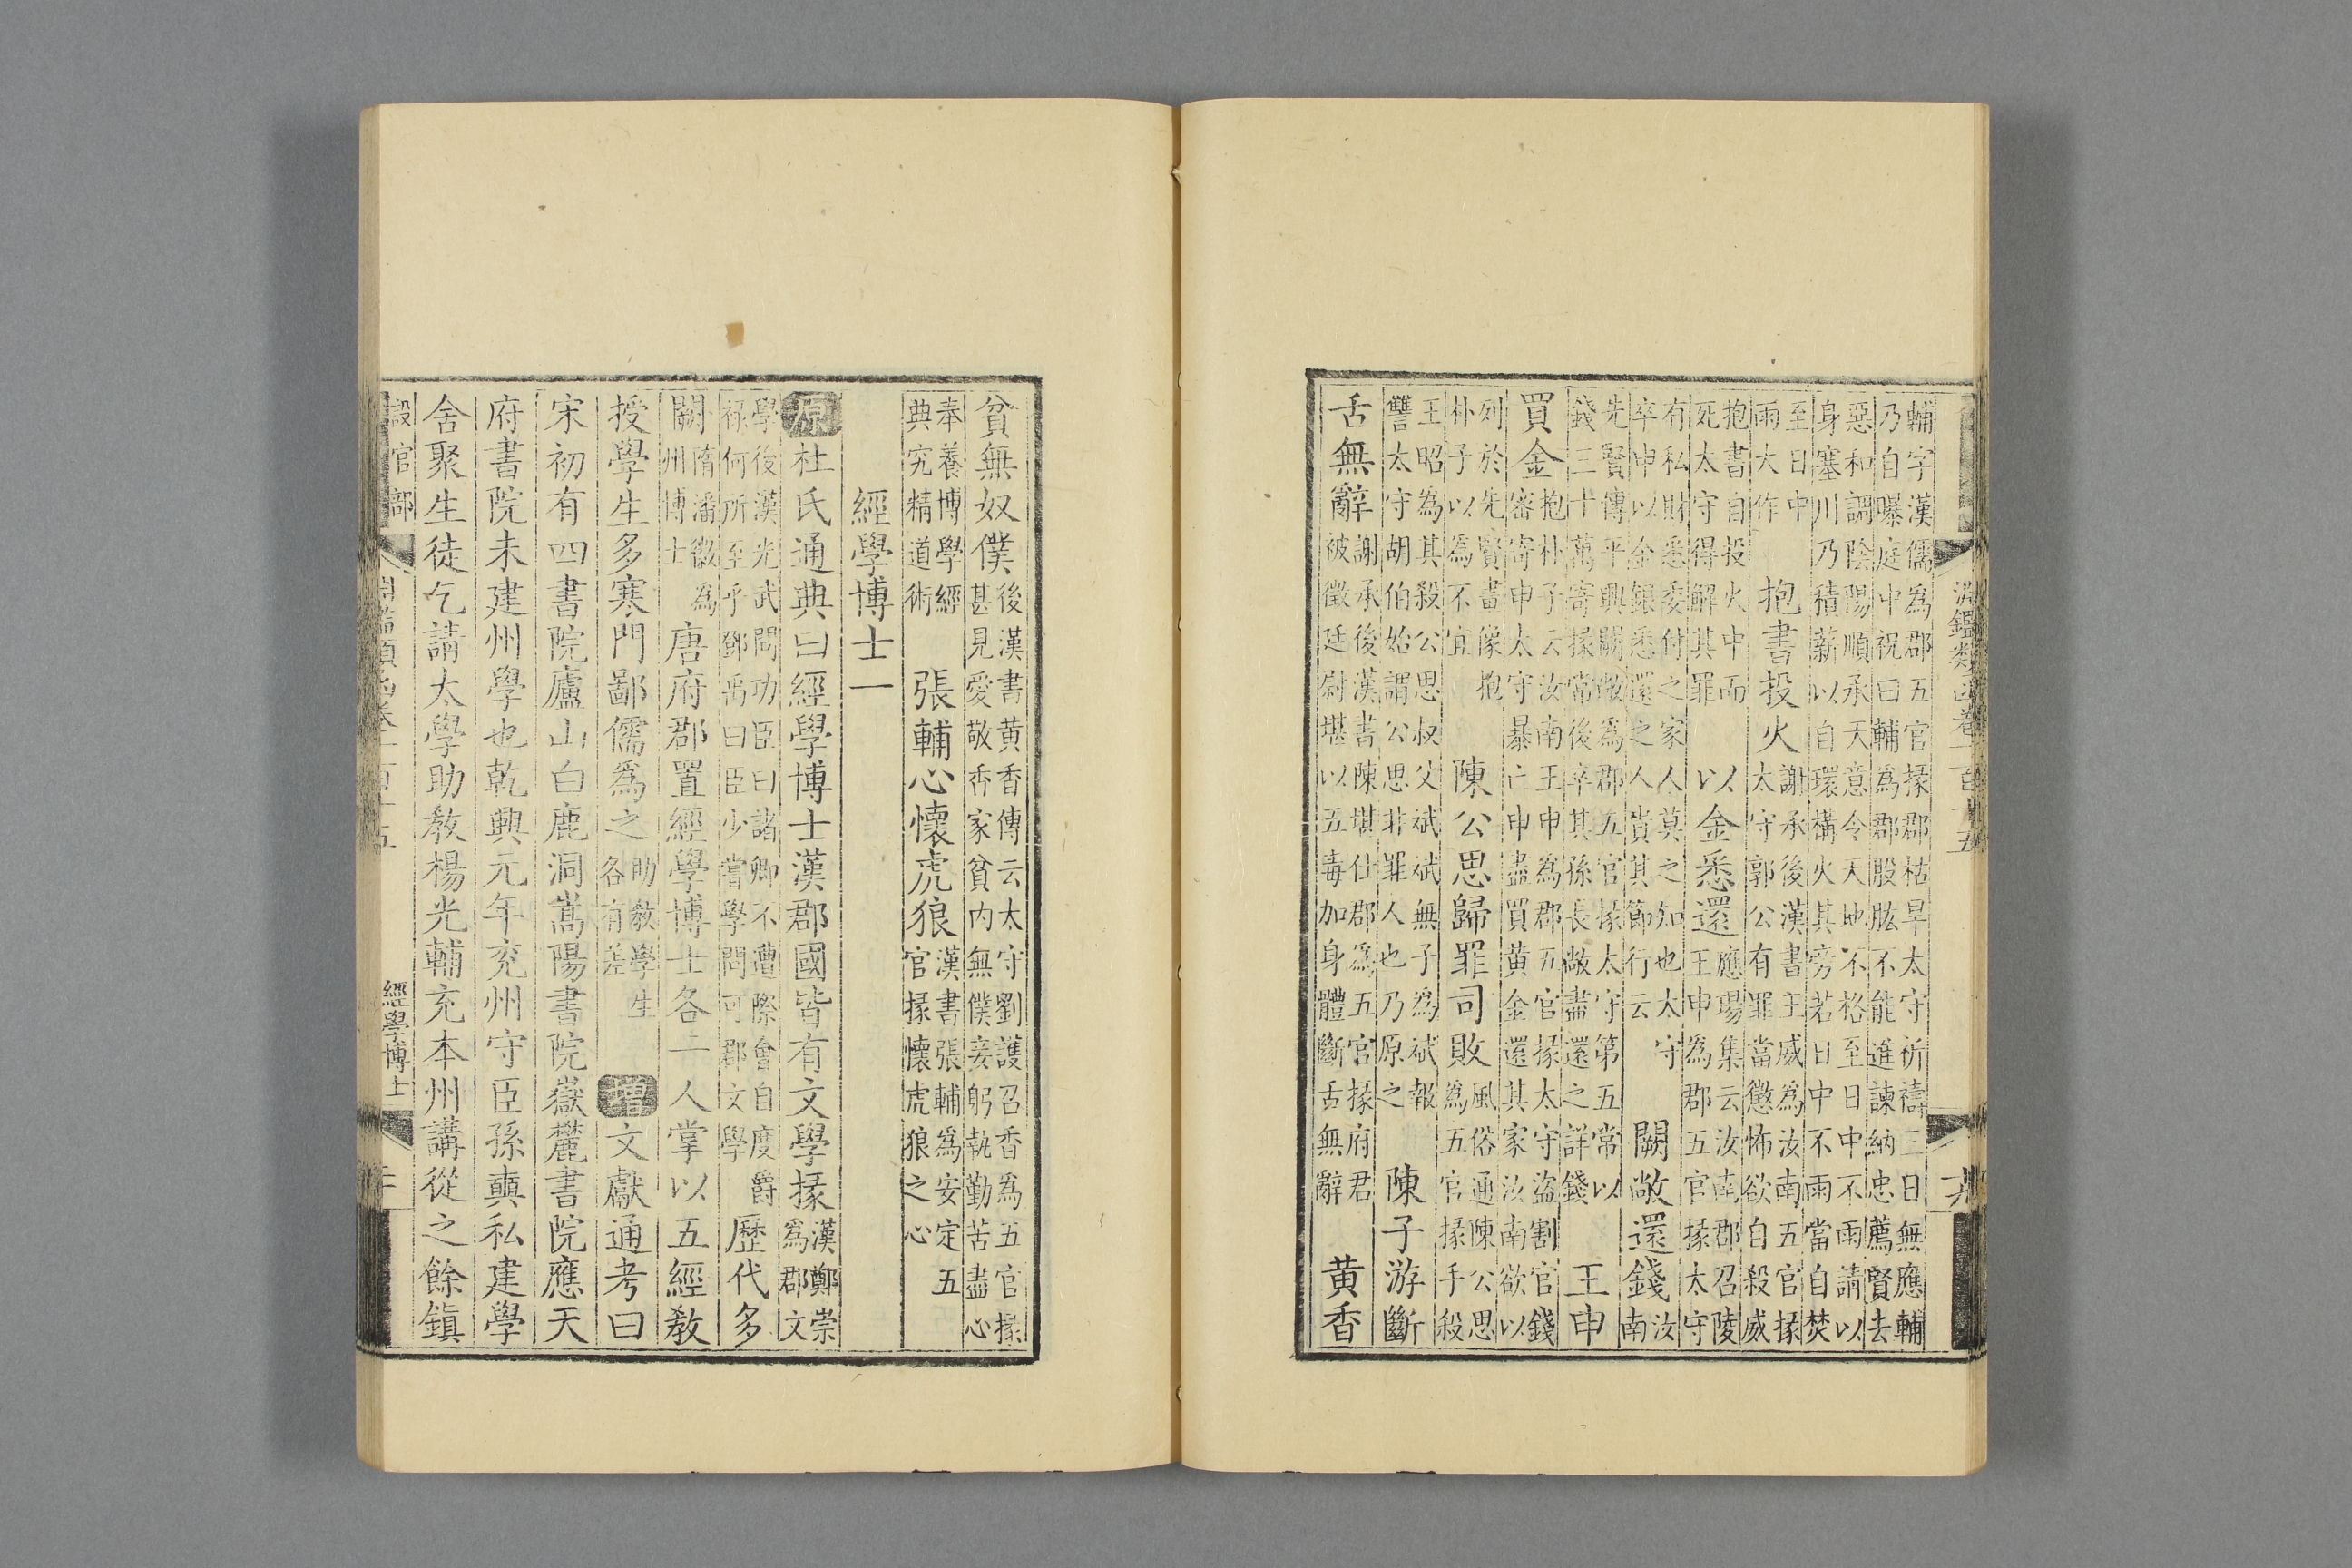 淵鑑類函卷一百十五
輔字漢儒為郡五官掾郡枯旱太守祈禱三日無應輔
乃自曝庭中祝曰輔為郡股肱不能進諫納忠薦賢去
惡和調陰陽順承天意令天地不格至日中不雨請以
身塞川乃積薪以自環構火其旁若日中不雨當自焚
至日中
雨大作
抱書投火
謝承後漢書王威為汝南五官掾
太守郭公有罪當懲怖欲自殺威
抱書自投火中而
死太守得解其罪
以金悉還
應瑒集云汝南郡召陵
王申為郡五官掾太守
有私財悉委付之家人莫之知也太守
卒申以金銀悉還之人貴其節行云
闞敞還錢
汝
南
先賢傳平興闞敞為郡五官掾太守第五常以
錢三十萬寄掾常後卒其孫長敞盡還之詳錢
王申
買金
抱朴子云汝南王申為郡五官掾太守盜割官錢
審寄申太守暴亡申盡買黃金還其家汝南欲以
列於先賢畫像抱
朴子以為不宜
陳公思歸罪司敗
風俗通陳公思
為五官掾手殺
王昭為其殺公思叔父斌斌無子為斌報
讐太守胡伯始謂公思非罪人也乃原之
陳子游斷
舌無辭
謝承後漢書陳堪仕郡為五官掾府君
被徵廷尉堪以五毒加身體斷舌無辭
黃香
貧無奴僕
後漢書黃香傳云太守劉護召香為五官掾
甚見愛敬香家貧內無僕妾躬執勤苦盡心
奉養博學經
典究精道術
張輔心懷虎狼
漢書張輔為安定五
官掾懷虎狼之心
經學博士一
原杜氏通典曰經學博士漢郡國皆有文學掾
漢鄭崇
為郡文
學後漢光武問功臣曰諸卿不遭際會自度爵
祿何所至乎鄧禹曰臣少嘗學問可郡文學
歷代多
闕
隋潘徽為
州博士
唐府郡置經學博士各一人掌以五經教
授學生多寒門鄙儒為之
助教學生
各有差
增文獻通考曰
宋初有四書院廬山白鹿洞嵩陽書院嶽麓書院應天
府書院未建州學也乾興元年兗州守臣孫奭私建學
舍聚生徒乞請太學助教楊光輔充本州講從之餘鎮
設官部
經學博士